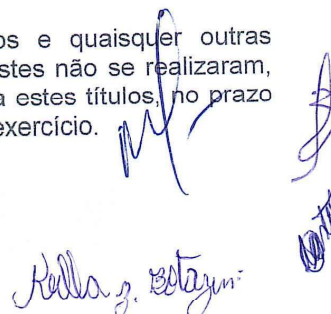 os e quaisquer outras
estes não se realizaram,
a estes títulos, no prazo
exercício.
Keilla z. Botazini